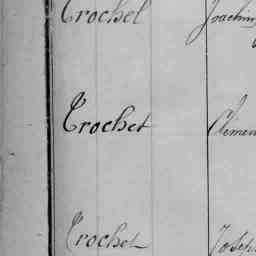 Trochet Joachim
Trochet Clémen
Trochet Joseph